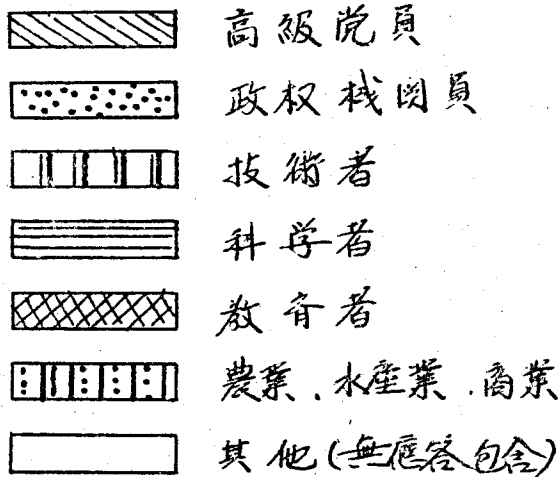 高級党員
政权機関員
技術者
科学者
教育者
農業、水産業、商業
其他(無應答包含)